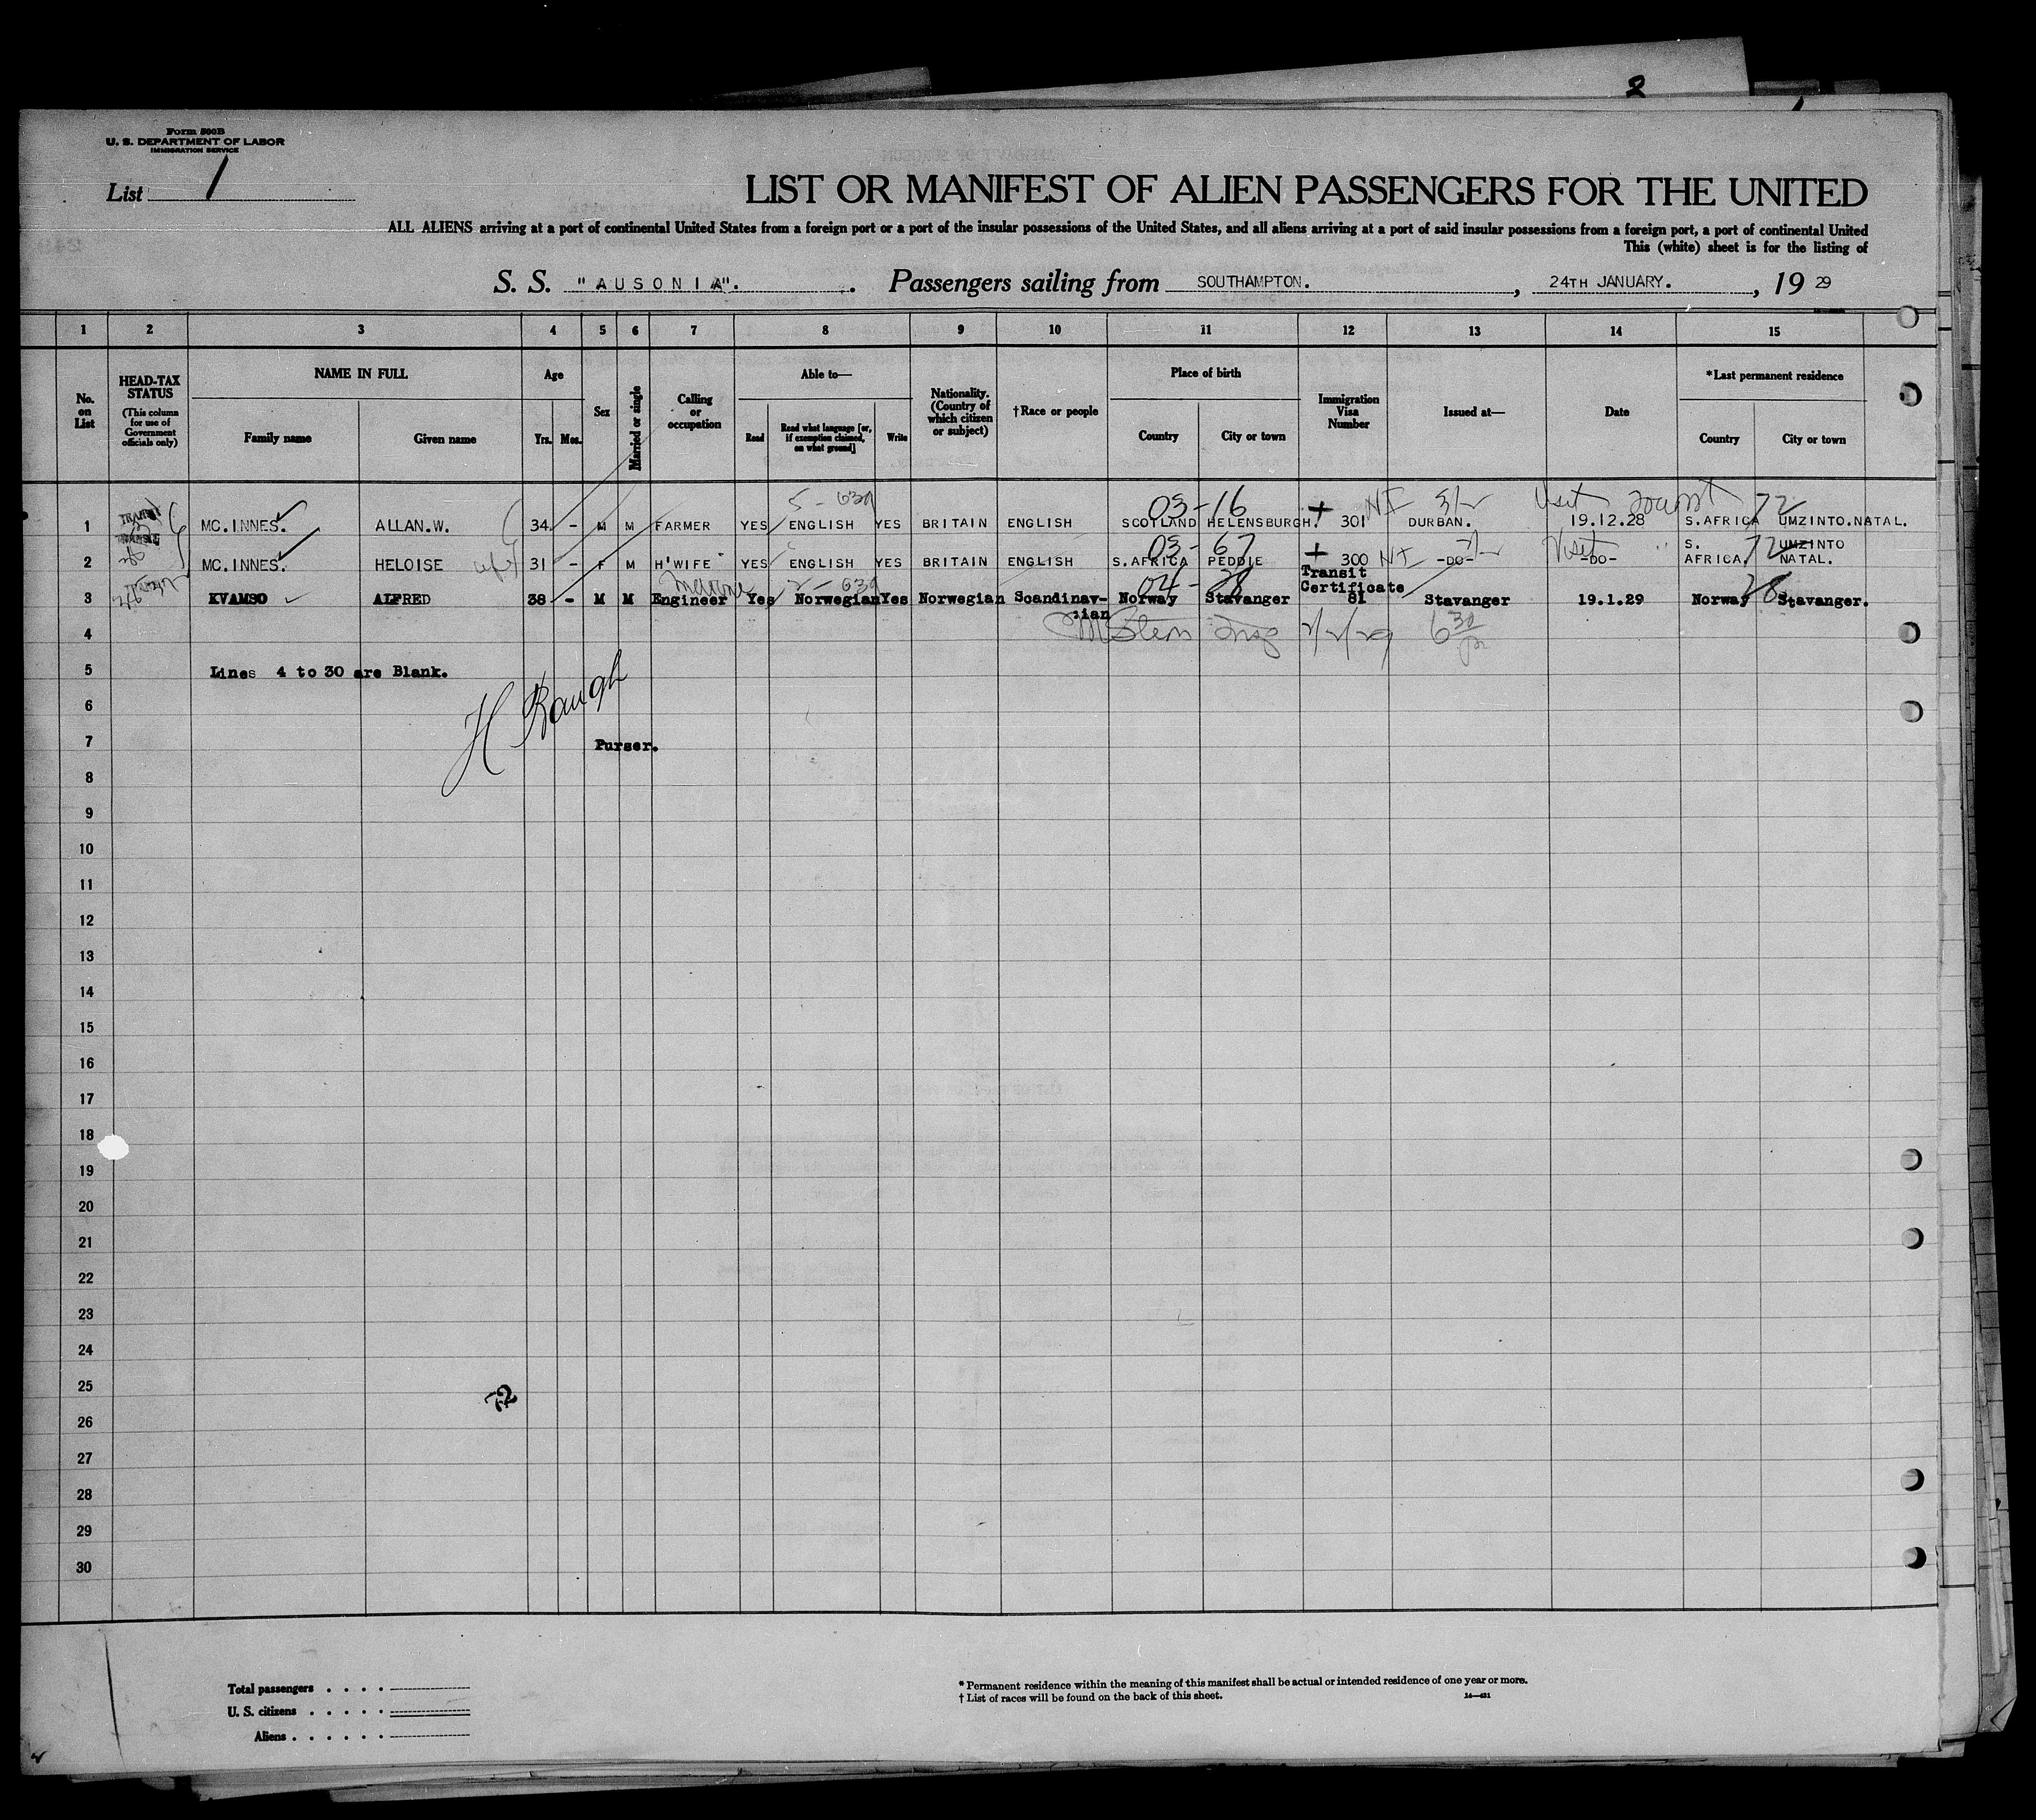 8
Form 500B
U. S. DEPARTMENT OF LABOR
IMMIGRATION SERVICE
List 1
LIST OR MANIFEST OF ALIEN PASSENGERS FOR THE UNITED
ALL ALIENS arriving at a port of continental United States from a foreign port or a port of the insular possessions of the United States, and all aliens arriving at a port of said insular possessions from a foreign port, a port of continental United
This (white) sheet is for the listing of
S. S. "AUSONIA". Passengers sailing from SOUTHAMPTON. , 24TH JANUARY. , 19 29
1 2 3 4 5 6 7 8 9 10 11 12 13 14 15
No. on List
HEAD-TAX STATUS (This column for use of Government officials only)
NAME IN FULL
Family name Given name
Age
Yrs. Mos.
Sex
Married or single
Calling or occupation
Able to—
Read Read what language [or, if exemption claimed, on what ground] Write
Nationality. (Country of which citizen or subject)
†Race or people
Place of birth
Country City or town
Immigration Visa Number
Issued at—
Date
*Last permanent residence
Country City or town
5 - 639 03-16 NI Visit 72
1 TRANSIT MC.INNES. ALLAN.W. 34 - M M FARMER YES ENGLISH YES BRITAIN ENGLISH SCOTLAND HELENSBURGH. 301 DURBAN. 19.12.28 S.AFRICA UMZINTO.NATAL.
03-67 Visit 72
2 MC.INNES. HELOISE wife 31 - F M H'WIFE YES ENGLISH YES BRITAIN ENGLISH S.AFRICA PEDDIE 300 NI -DO- -DO- S. AFRICA. UMZINTO NATAL.
2 - 639 04-28 28
3 KVAMSO ALFRED 38 - M M Engineer Yes Norwegian Yes Norwegian Scandinav-ian Norway Stavanger Transit Certificate 81 Stavanger 19.1.29 Norway Stavanger.
4 Stern 2/2/29 6 30
5 Lines 4 to 30 are Blank.
6 H Baugh
7 Purser.
8
9
10
11
12
13
14
15
16
17
18
19
20
21
22
23
24
25
72
26
27
28
29
30
Total passengers . . . .
U. S. citizens . . . . .
Aliens . . . . . .
* Permanent residence within the meaning of this manifest shall be actual or intended residence of one year or more.
† List of races will be found on the back of this sheet. 14—431